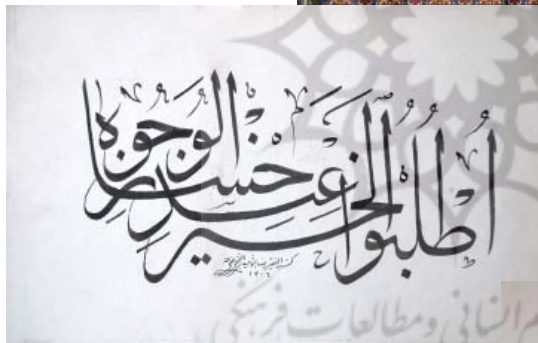 اُطْلُبُوا الْخَيْرَ عِنْدَ حِسَانِ الْوُجُوهِ
۱۴۰۶
م انسانی و مطالعات فرهنگی